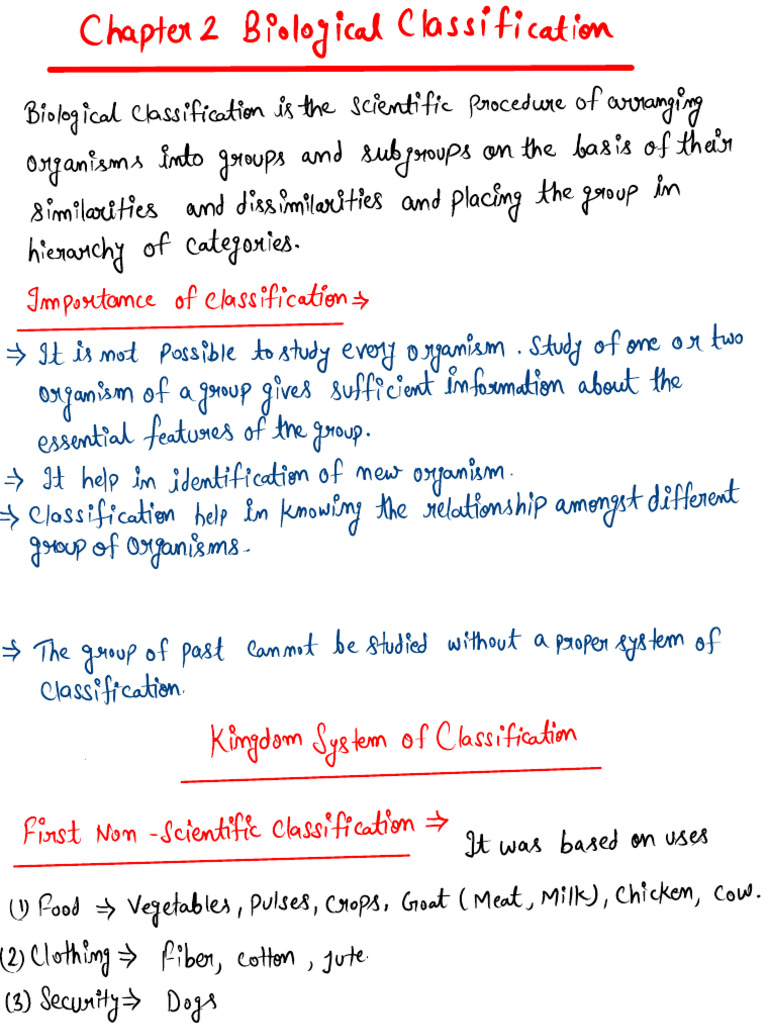 Chapter 2 Biological Classification
Biological Classification is the scientific procedure of arranging
organisms into groups and subgroups on the basis of their
similarities and dissimilarities and placing the group in
hierarchy of categories.
Importance of classification ⇒
⇒ It is not possible to study every organism. Study of one or two
organism of a group gives sufficient information about the
essential features of the group.
⇒ It help in identification of new organism.
⇒ Classification help in knowing the relationship amongst different
group of organisms.
⇒ The group of past cannot be studied without a proper system of
classification.
Kingdom System of Classification
First Non-Scientific Classification ⇒ It was based on uses
(1) Food ⇒ Vegetables, Pulses, Crops, Goat (Meat, Milk), Chicken, Cow.
(2) Clothing ⇒ Fiber, cotton, Jute.
(3) Security ⇒ Dogs